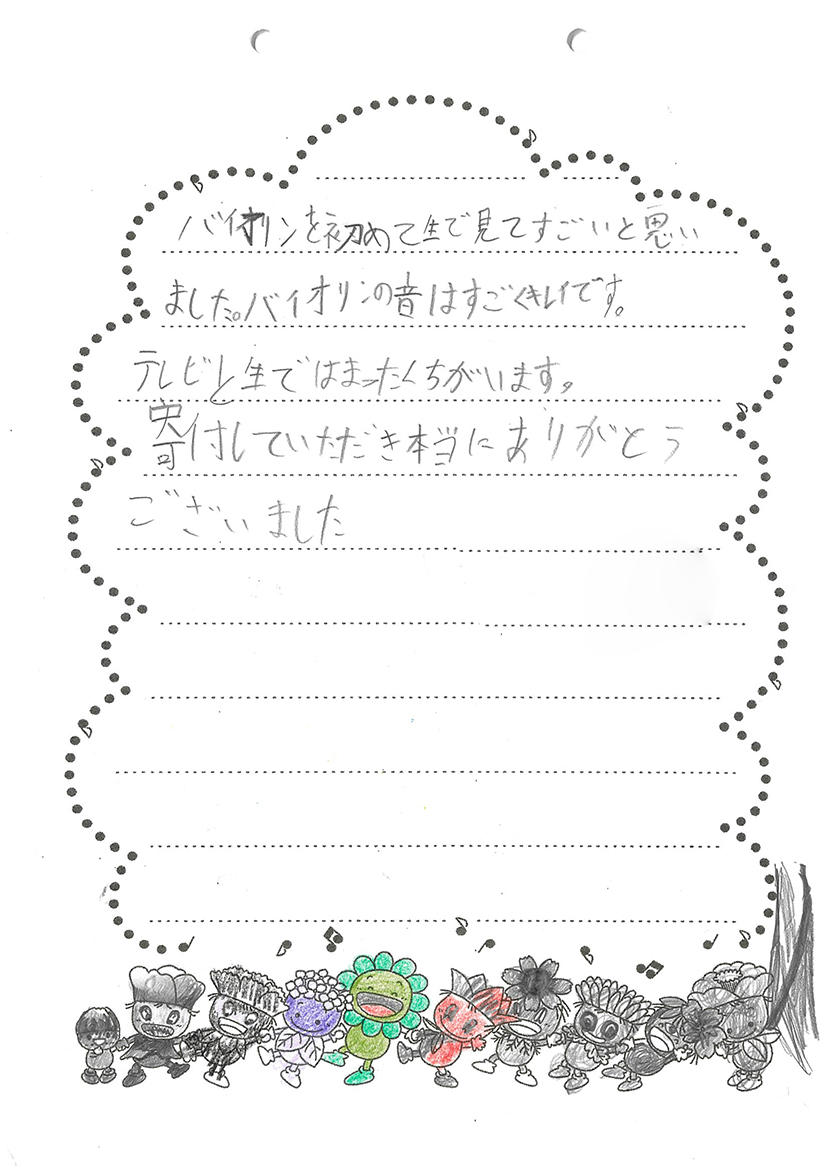 バイオリンを初めて生で見てすごいと思い
ました。バイオリンの音はすごくキレイです。
テレビと生ではまったくちがいます。
寄付していただき本当にありがとう
ございました